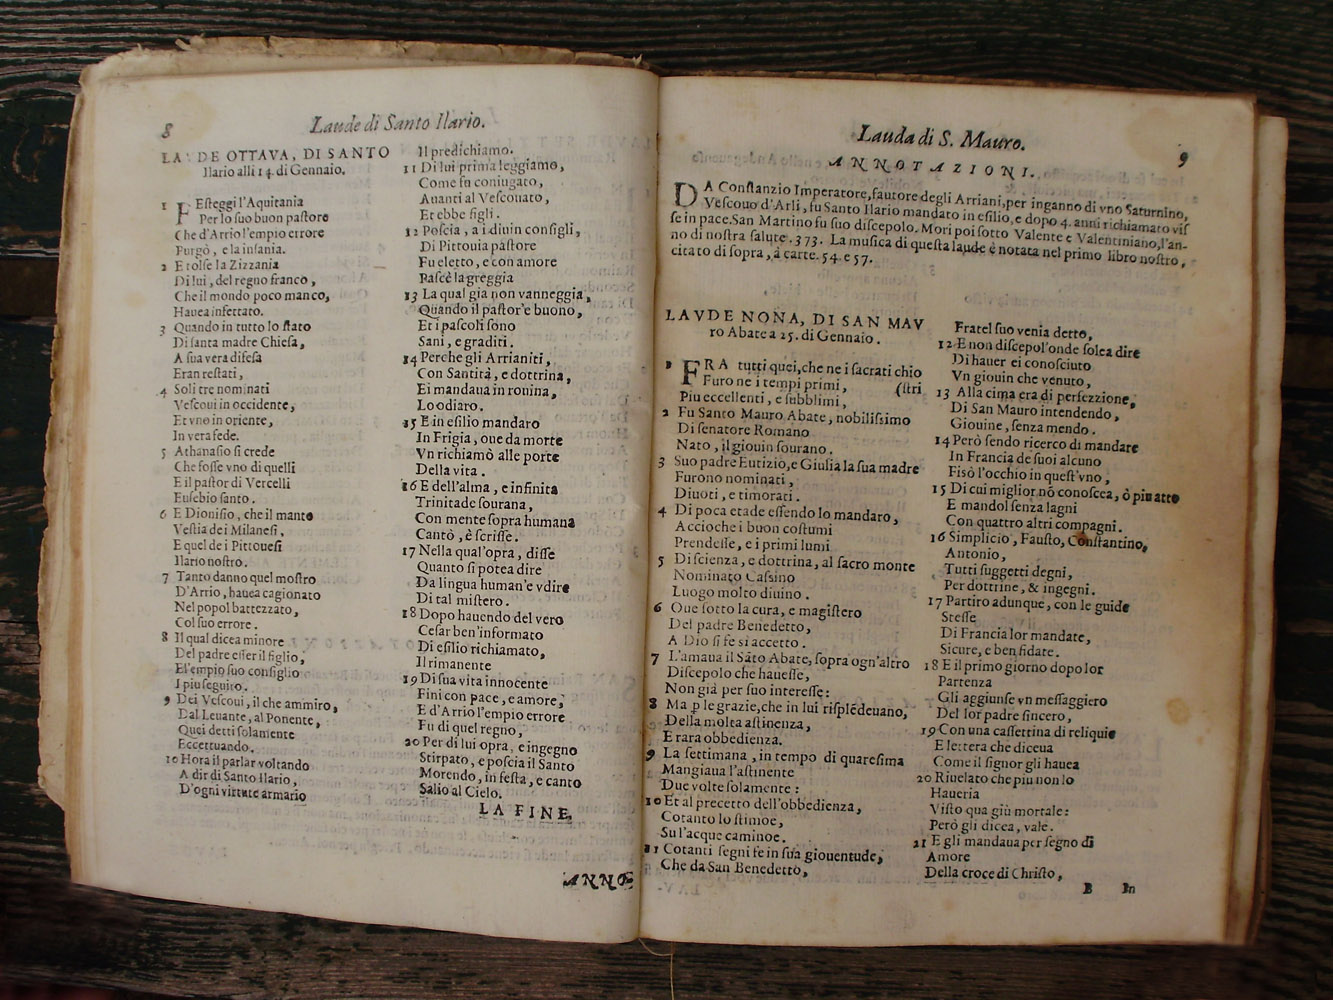 8
Laude di Santo Ilario.
LAVDE OTTAVA, DI SANTO
Ilario alli 14. di Gennaio.
1 FEsteggi l'Aquitania
Per lo suo buon pastore
Che d'Arrio l'empio errore
Furgò, e la insania.
2 E tolse la Zizzania
Di lui, del regno franco,
Che il mondo poco manco,
Hauea infettato.
3 Quando in tutto lo stato
Di santa madre Chiesa,
A sua vera difesa
Eran restati,
4 Soli tre nominati
Vescoui in occidente,
Et vno in oriente,
In vera fede.
5 Athanasio si crede
Che fosse vno di quelli
E il pastor di Vercelli
Eusebio santo.
6 E Dionisio, che il manto
Vestia dei Milanesi,
E quel de i Pittouesi
Ilario nostro.
7 Tanto danno quel mostro
D'Arrio, hauea cagionato
Nel popol battezzato,
Col suo errore.
8 Il qual dicea minore
Del padre esser il figlio,
E l'empio suo consiglio
I piu seguiro.
9 Dei Vescoui, il che ammiro,
Dal Leuante, al Ponente,
Quei detti solamente
Eccettuando.
10 Hora il parlar voltando
A dir di Santo Ilario,
D'ogni virtute armario
Il predichiamo.
11 Di lui prima leggiamo,
Come fu coniugato,
Auanti al Vescouato,
Et ebbe figli.
12 Poscia, a i diuin consigli,
Di Pittouia pastore
Fu eletto, e con amore
Pascè la greggia
13 La qual gia non vanneggia,
Quando il pastor'e buono,
Et i pascoli sono
Sani, e graditi.
14 Perche gli Arrianiti,
Con Santità, e dottrina,
Ei mandaua in rouina,
Lo odiaro.
15 E in esilio mandaro
In Frigia, oue da morte
Vn richiamò alle porte
Della vita.
16 E dell'alma, e infinita
Trinitade sourana,
Con mente sopra humana
Cantò, è scrisse.
17 Nella qual'opra, disse
Quanto si potea dire
Da lingua human'e vdire
Di tal mistero.
18 Dopo hauendo del vero
Cesar ben'informato
Di esilio richiamato,
Il rimanente
19 Di sua vita innocente
Fini con pace, e amore,
E d'Arrio l'empio errore
Fu di quel regno,
20 Per di lui opra, e ingegno
Stirpato, e poscia il Santo
Morendo, in festa, e canto
Salio al Cielo.
LA FINE.
ANNO
Lauda di S. Mauro.
9
ANNOTAZIONI.
DA Constanzio Imperatore, fautore degli Arriani, per inganno di vno Saturnino,
Vescouo d'Arli, fu Santo Ilario mandato in esilio, e dopo 4. anni richiamato vis
se in pace. San Martino fu suo discepolo. Mori poi sotto Valente e Valentiniano, l'an-
no di nostra salute. 373. La musica di questa laude è notata nel primo libro nostro,
citato di sopra, à carte. 54. e 57.
LAVDE NONA, DI SAN MAV
ro Abate a 25. di Gennaio.
1 FRA tutti quei, che ne i sacrati chio
Furo ne i tempi primi, (stri
Piu eccellenti, e subblimi,
2 Fu Santo Mauro Abate, nobilissimo
Di senatore Romano
Nato, il giouin sourano.
3 Suo padre Eutizio, e Giulia la sua madre
Furono nominati,
Diuoti, e timorati.
4 Di poca etade essendo lo mandaro,
Accioche i buon costumi
Prendesse, e i primi lumi
5 Di scienza, e dottrina, al sacro monte
Nominato Cassino
Luogo molto diuino.
6 Oue sotto la cura, e magistero
Del padre Benedetto,
A Dio si fe si accetto.
7 L'amaua il Sāto Abate, sopra ogn'altro
Discepolo che hauesse,
Non già per suo interesse:
8 Ma p le grazie, che in lui risplēdeuano,
Della molta astinenza,
E rara obbedienza.
9 La settimana, in tempo di quaresima
Mangiaua l'astinente
Due volte solamente:
10 Et al precetto dell'obbedienza,
Cotanto lo stimoe,
Su l'acque caminoe.
11 Cotanti segni fe in sua giouentude,
Che da San Benedetto,
Fratel suo venia detto,
12 E non discepol'onde solea dire
Di hauer ei conosciuto
Vn giouin che venuto,
13 Alla cima era di perfezzione,
Di San Mauro intendendo,
Giouine, senza mendo.
14 Però sendo ricerco di mandare
In Francia de suoi alcuno
Fisò l'occhio in quest'vno,
15 Di cui miglior nō conoscea, ò piu atto
E mandol senza lagni
Con quattro altri compagni.
16 Simplicio, Fausto, Constantino,
Antonio,
Tutti suggetti degni,
Per dottrine, & ingegni.
17 Partiro adunque, con le guide
Stesse
Di Francia lor mandate,
Sicure, e ben fidate.
18 E il primo giorno dopo lor
Partenza
Gli aggiunse vn messaggiero
Del lor padre sincero,
19 Con una cassettina di reliquie
E lettera che diceua
Come il signor gli hauea
20 Riuelato che piu non lo
Haueria
Visto qua giù mortale:
Però gli dicea, vale.
21 E gli mandaua per segno di
Amore
Della croce di Christo,
B In